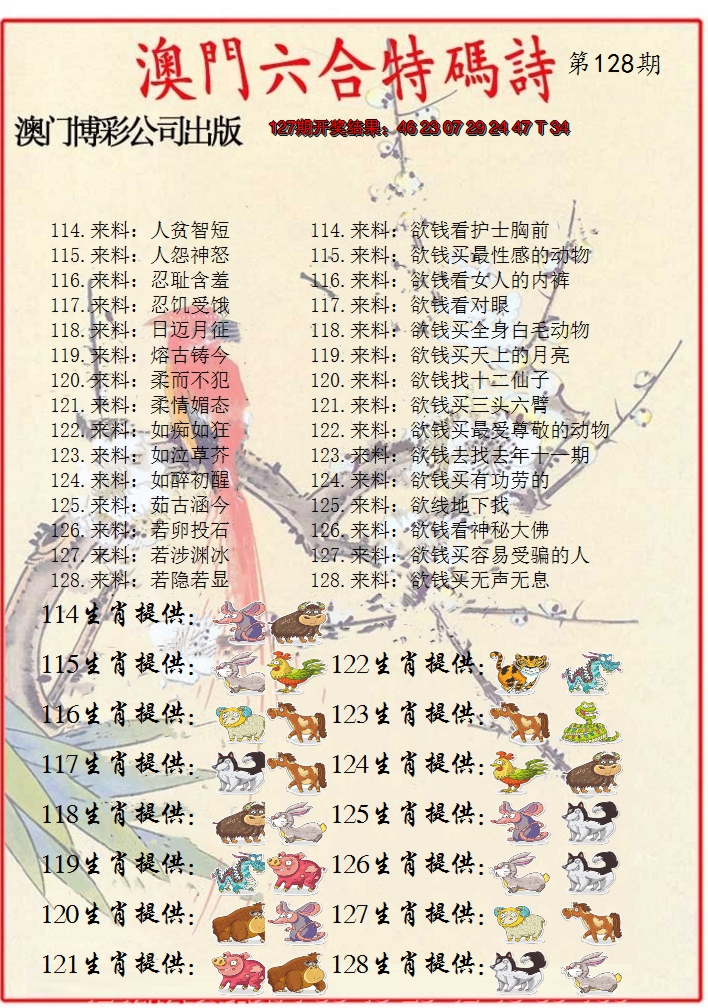 澳門六合特碼詩 第128期
澳门博彩公司出版 127期开奖结果：46 23 07 29 24 47 T 34
114.来料：人贫智短 114.来料：欲钱看护士胸前
115.来料：人怨神怒 115.来料：欲钱买最性感的动物
116.来料：忍耻含羞 116.来料：欲钱看女人的内裤
117.来料：忍饥受饿 117.来料：欲钱看对眼
118.来料：日迈月征 118.来料：欲钱买全身白毛动物
119.来料：熔古铸今 119.来料：欲钱买天上的月亮
120.来料：柔而不犯 120.来料：欲钱找十二仙子
121.来料：柔情媚态 121.来料：欲钱买三头六臂
122.来料：如痴如狂 122.来料：欲钱买最受尊敬的动物
123.来料：如泣草芥 123.来料：欲钱去找去年十一期
124.来料：如醉初醒 124.来料：欲钱买有功劳的
125.来料：茹古涵今 125.来料：欲线地下找
126.来料：若卵投石 126.来料：欲钱看神秘大佛
127.来料：若涉渊冰 127.来料：欲钱买容易受骗的人
128.来料：若隐若显 128.来料：欲钱买无声无息
114生肖提供：
115生肖提供： 122生肖提供：
116生肖提供： 123生肖提供：
117生肖提供： 124生肖提供：
118生肖提供： 125生肖提供：
119生肖提供： 126生肖提供：
120生肖提供： 127生肖提供：
121生肖提供： 128生肖提供：